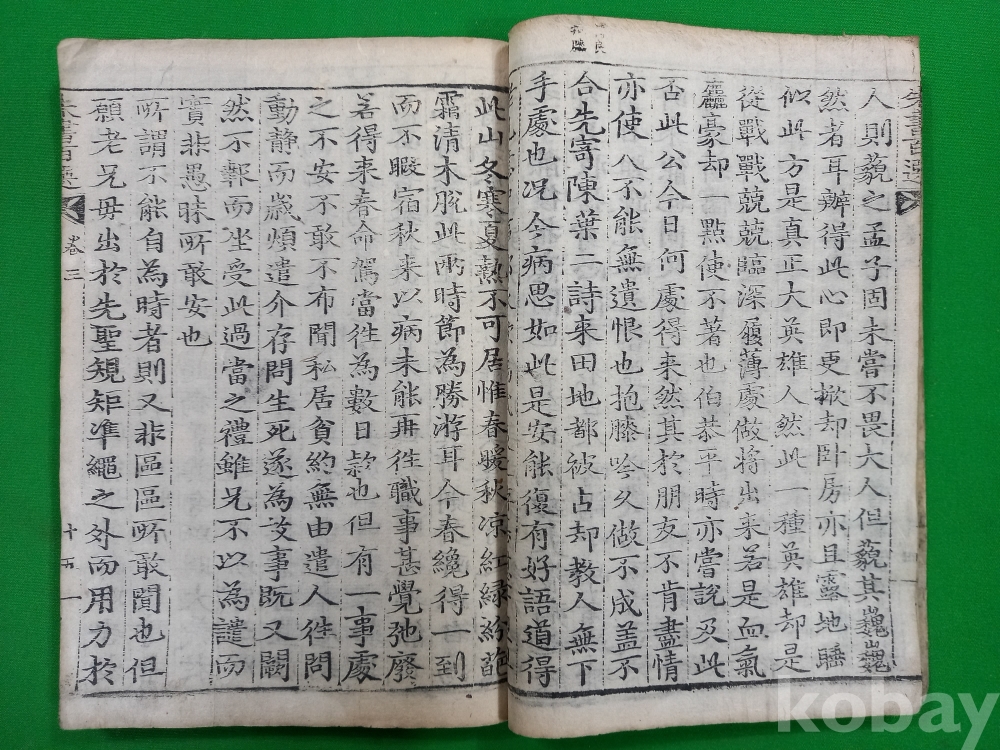 朱書百選
人則藐之孟子固未嘗不畏大人但藐其巍巍
然者耳辦得此心即更掀却臥房亦且露地睡
似此方是真正大英雄人然此一種英雄却是
從戰戰兢兢臨深履薄處做將出来若是血氣
麤豪却一點使不著也伯恭平時亦嘗說及此
否此公今日何處得来然其於朋友不肯盡情
亦使人不能無遺恨也抱膝吟久做不成盖不
合先寄陳葉二詩来田地都被占却教人無下
手處也况今病思如此是安能復有好語道得
此山冬寒夏熱不可居惟春暖秋凉紅緑紛
霜清木脫此兩時節為勝游耳今春纔得一到
而不暇宿秋来以病未能再徃職事甚覺弛廢
若得来春命駕當徃為數日款也但有一事處
之不安不敢不布聞私居貧約無由遣人徃問
動静而歲煩遣介存問生死遂為故事既又闕
然不報而坐受此過當之禮雖兄不以為譴而
實非愚昧所敢安也
所謂不能自為時者則又非區區所敢聞也但
願老兄毋出於先聖規矩準繩之外而用力於
朱書百選
卷三
十五
kobay